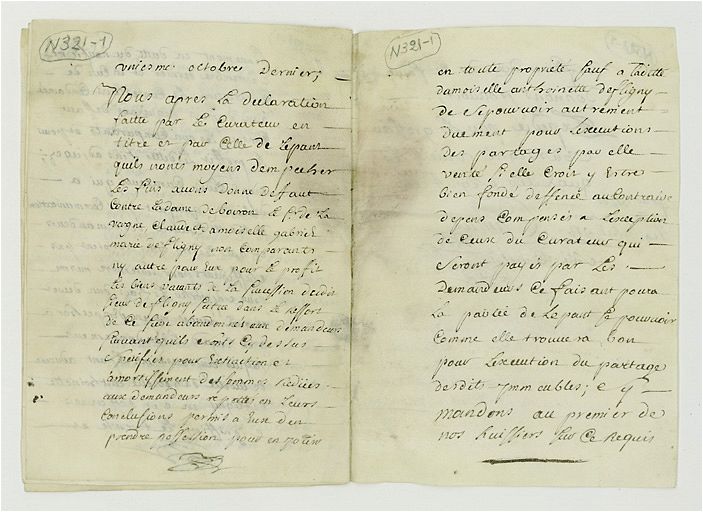 N321-1
uniesme octobre Dernier;
Nous apres La declaration
faitte par Le Curateur en
titre et par Celle de Lepaut
quils nonts moyens dempecher
Les fins avons donne deffaut
Contre La dame de boiron Le Sr de La
vaigne Claude et amoiselle gabriel
marie de fligny non comparants
ny autre pour Eux pour le profit
Les biens vacants de La succession dudit
Sieur de fligny scitue dans Le Ressort
de ce siege abandonnes aux demandeurs
suivant quils e onts Cy dessus
specifies pour Extinction et
amortissement des sommes
aux demandeurs reportes en Leurs
Conclusions permis a Eux den
prendre possession pour en
N321-1
en toutte propriete sauf a Laditte
damoiselle anthoinette de fligny
de se pouvoir autrement
duement pour Lexecutions
des partages par elle
vente sy elle Croit y Estre
bien fonde deffence au Contraire
depens Compensés a Lexception
de Ceux du Curateur qui
seront payés par Les
Demandeurs Ce faisant poura
La de Lepaut se pouvoir
comme elle trouvera bon
pour Lexecution du partage
desdits ymmeubles; Sy
mandons au premier de
nos huissiers sur Ce Requis